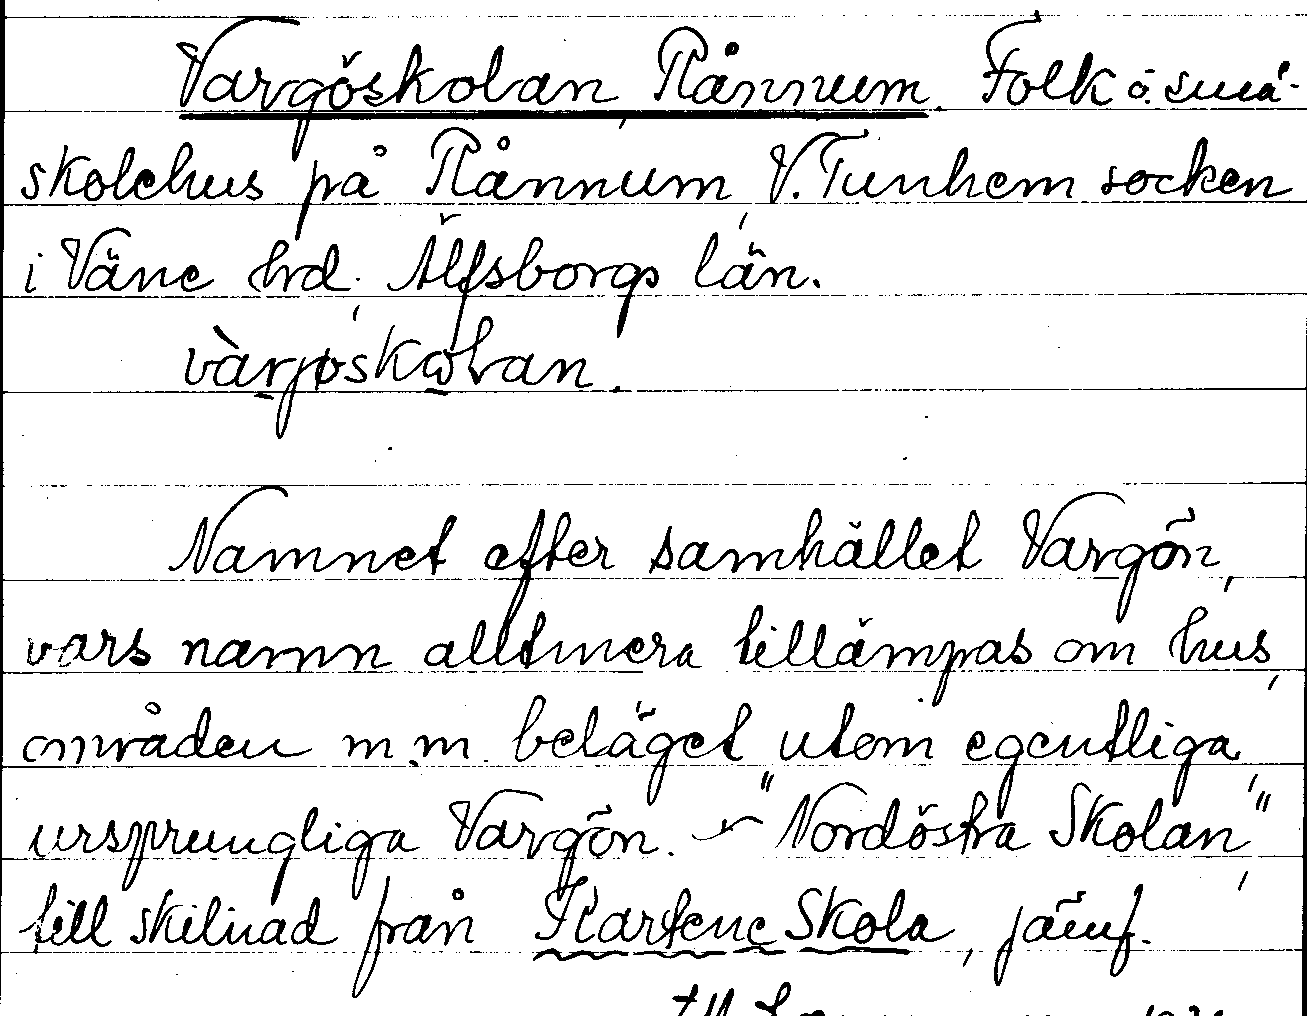 Vargöskolan, Rånnum. Folk o. små-
skolehus på Rånnum, V. Tunhem socken
i Väne hrd, Älfsborgs län.
vàrjøskωlan.
Namnet efter samhället Vargön,
vars namn alltmera tillämpas om hus,
områden m.m. beläget utom egentliga,
ursprungliga Vargön. "Nordöstra Skolan",
till skilnad från Hartene Skola, jämf.